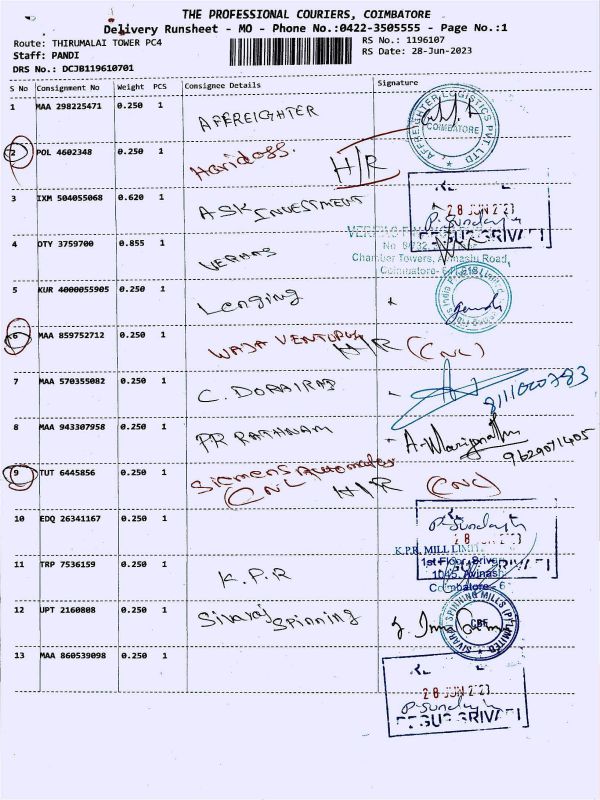 THE PROFESSIONAL COURIERS, COIMBATORE
Delivery Runsheet - MO - Phone No.:0422-3505555 - Page No.:1
Route: THIRUMALAI TOWER PC4
RS No.: 1196107
Staff: PANDI
RS Date: 28-Jun-2023
DRS No.: DCJB119610701
S No Consignment No Weight PCS Consignee Details Signature
1 MAA 298225471 0.250 1 AFFREIGHTER
AFFREIGHTER LOGISTICS PVT. LTD COIMBATORE
2 POL 4602348 0.250 1 Haridoss. H/R
3 IXM 504055068 0.620 1 ASK INVESTMENT
28 JUN
P. Sundar
4 OTY 3759700 0.855 1
Chamber Towers, Avinashi Road,
Coimbatore-
5 KUR 4000055905 0.250 1 Lenging
6 MAA 859752712 0.250 1 WAJA H/R (CNL)
7 MAA 570355082 0.250 1 C. DORAIRAJ
8 MAA 943307958 0.250 1 PR RATHNAM
9629071405
9 TUT 6445856 0.250 1 Siemens
CNL H/R (CNL)
10 EDQ 26341167 0.250 1
28 JUN
K.P.R. MILL
1st Floor,
1045,
Coimbatore-
11 TRP 7536159 0.250 1 K.P.R
12 UPT 2160808 0.250 1 Sivaraj Spinning
SIVARAJ SPINNING MILLS (P) LIMITED CBE
13 MAA 860539098 0.250 1
28 JUN